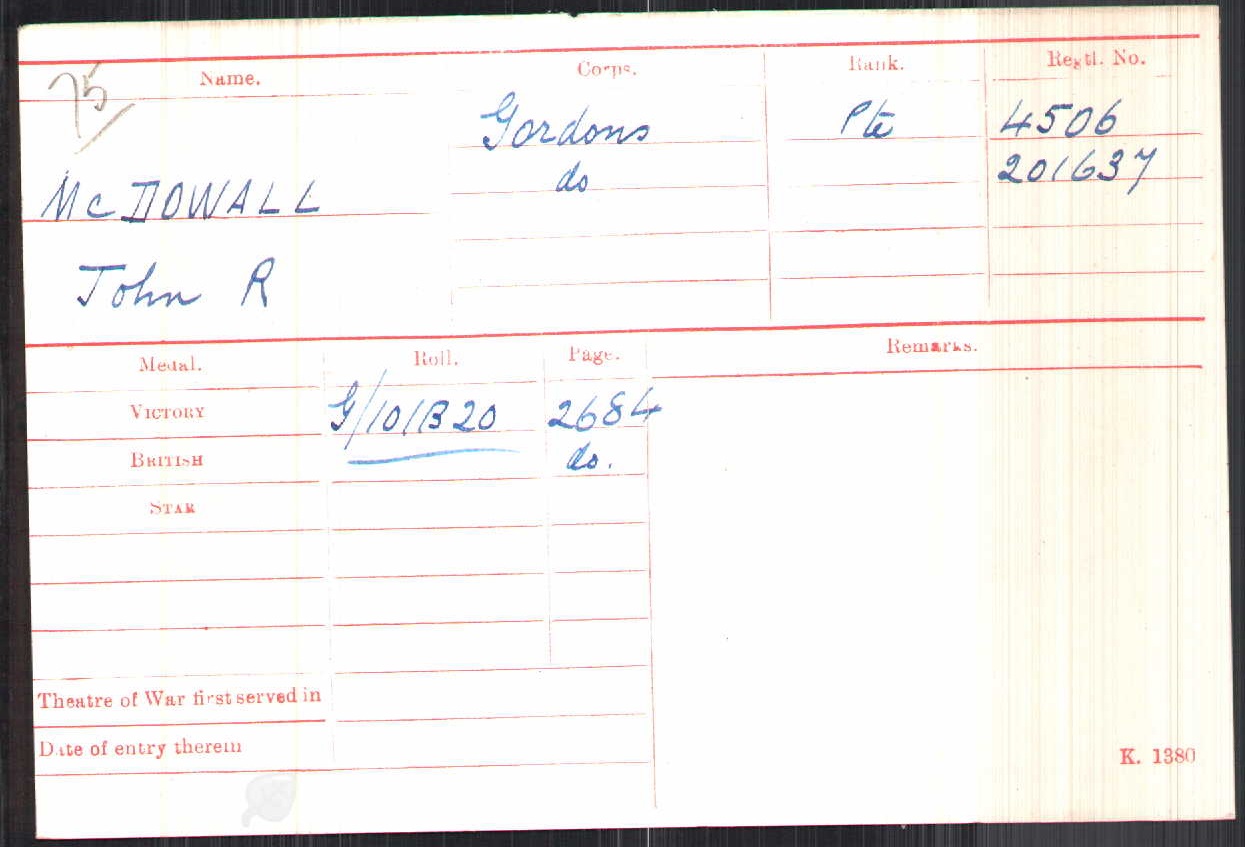 75
Name. Corps. Rank. Regtl. No.
Gordons Pte 4506
do 201637
McDOWALL
John R
Medal. Roll. Page. Remarks.
VICTORY G/101B20 2684
BRITISH do.
STAR
Theatre of War first served in
Date of entry therein
K. 1380